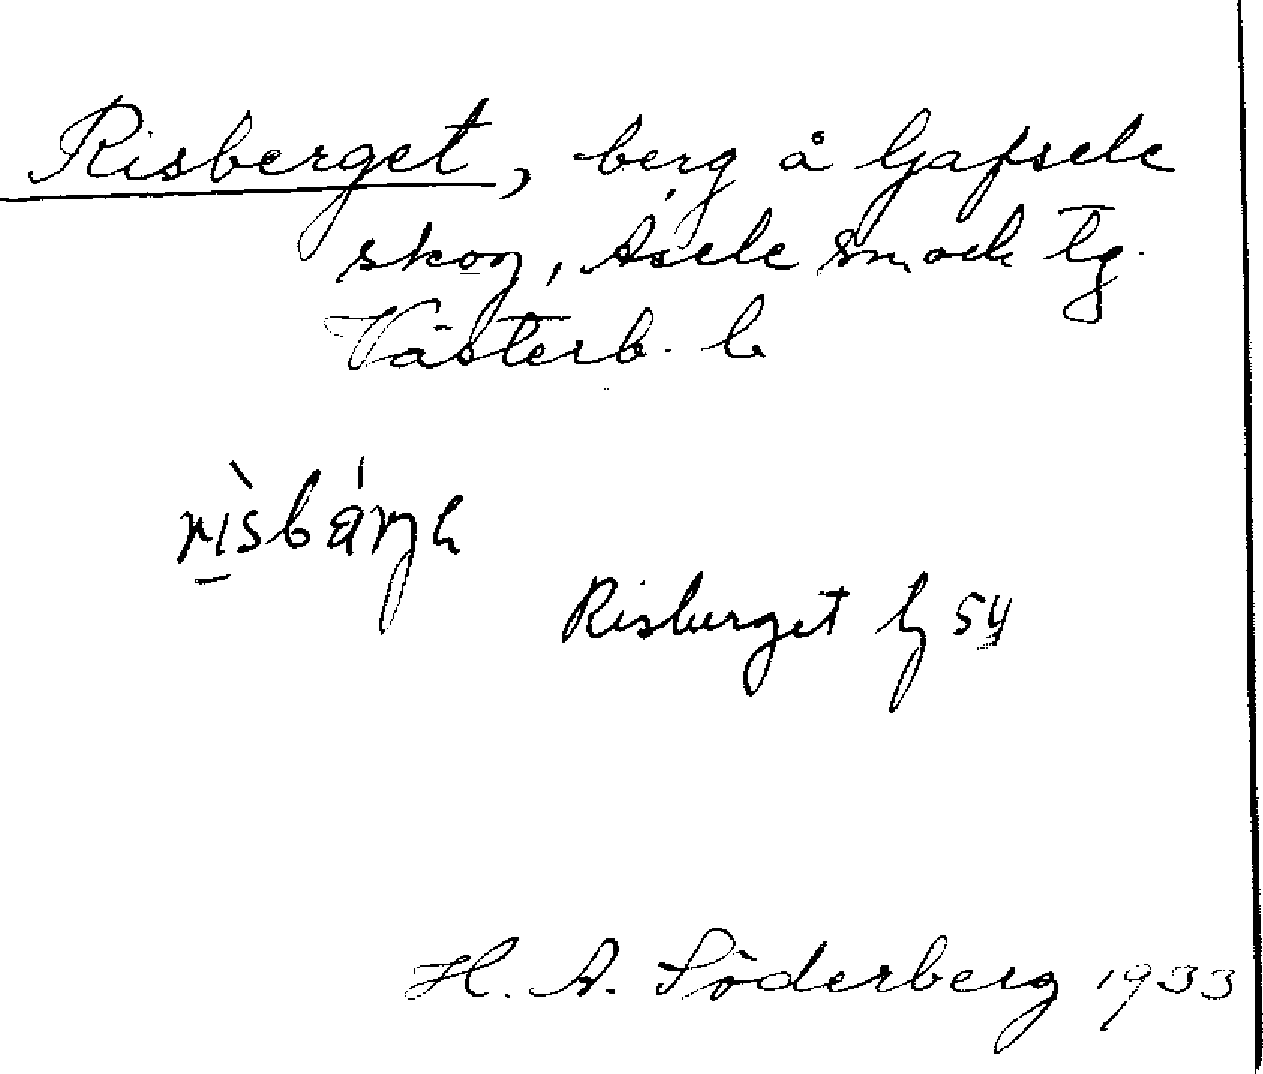 Risberget, berg å Gafsele
skog, Åsele sn och tg.
Västerb. l.
Risberget
H. A. Söderberg 1933